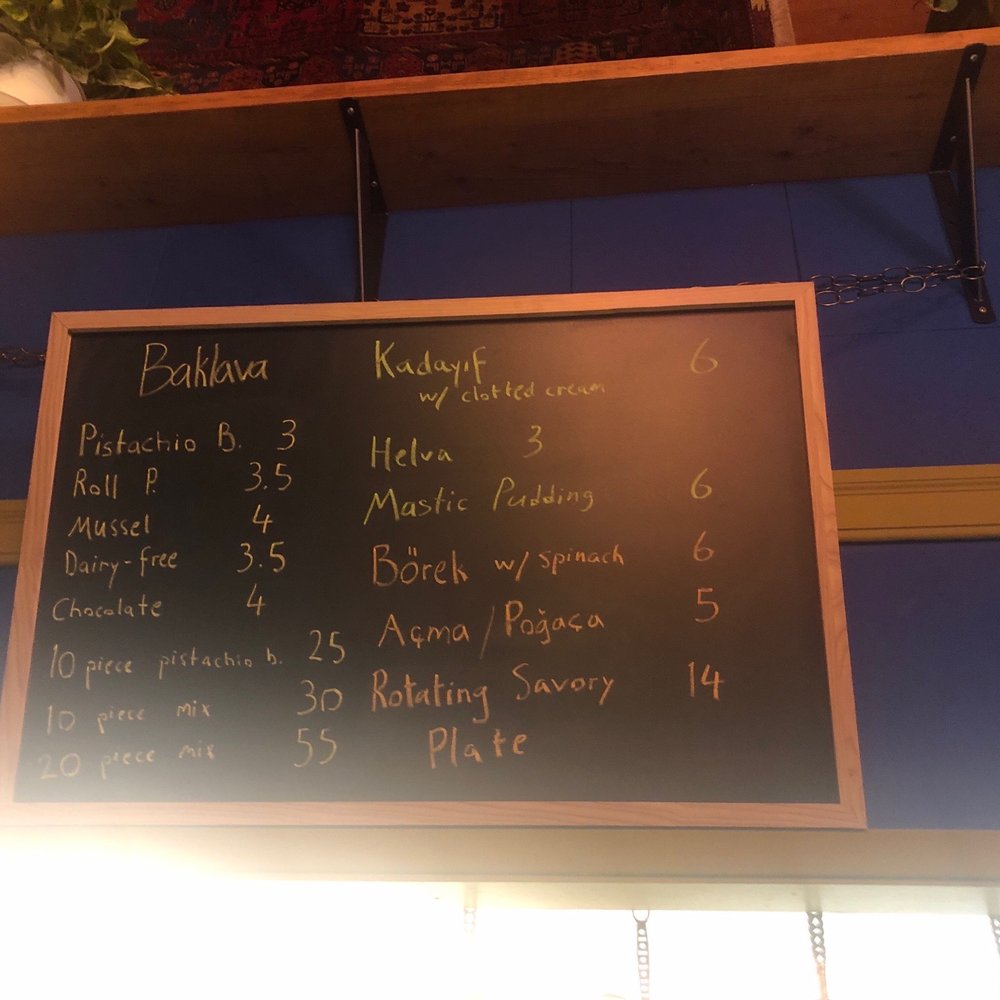 Baklava
Pistachio B. 3
Roll P. 3.5
Mussel 4
Dairy-free 3.5
Chocolate 4
10 piece pistachio b. 25
10 piece mix 30
20 piece mix 55
Kadayıf 6
w/ clotted cream
Helva 3
Mastic Pudding 6
Börek w/ spinach 6
Açma / Poğaça 5
Rotating Savory 14
Plate